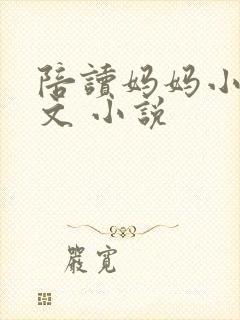 陪讀妈妈小
文 小說
嚴寬